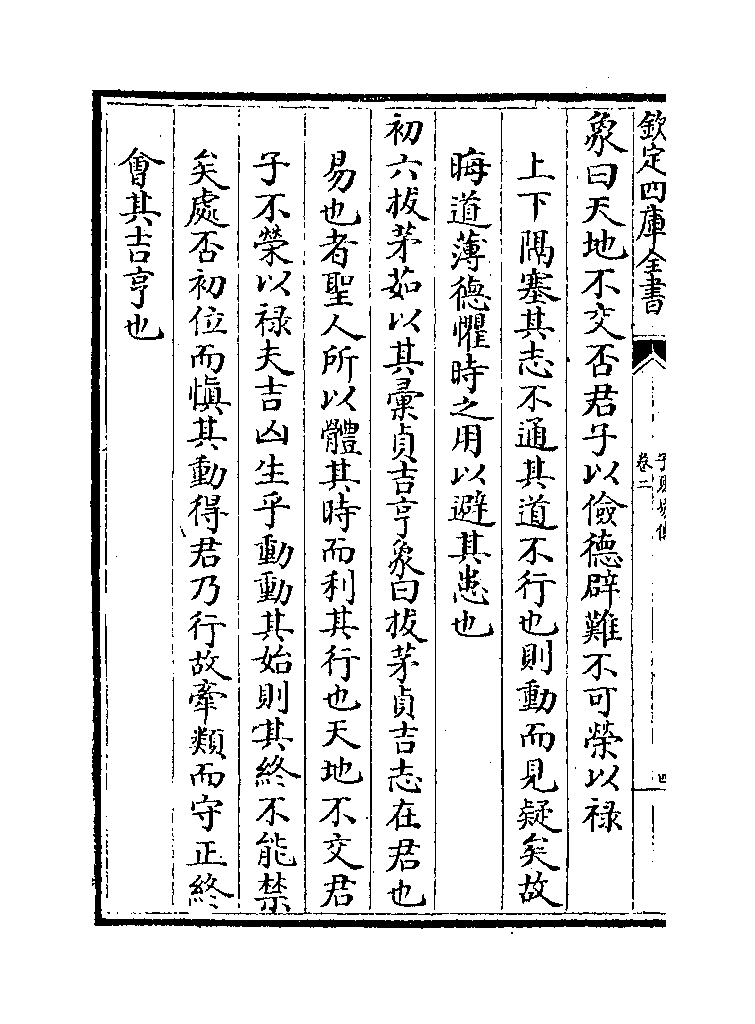 欽定四庫全書
卷二
象曰天地不交否君子以儉德辟難不可榮以禄
上下隅塞其志不通其道不行也則動而見疑矣故
晦道薄德懼時之用以避其患也
初六拔茅茹以其彚貞吉亨象曰拔茅貞吉志在君也
易也者聖人所以體其時而利其行也天地不交君
子不榮以禄夫吉凶生乎動動其始則其終不能禁
矣處否初位而慎其動得君乃行故牽類而守正終
會其吉亨也